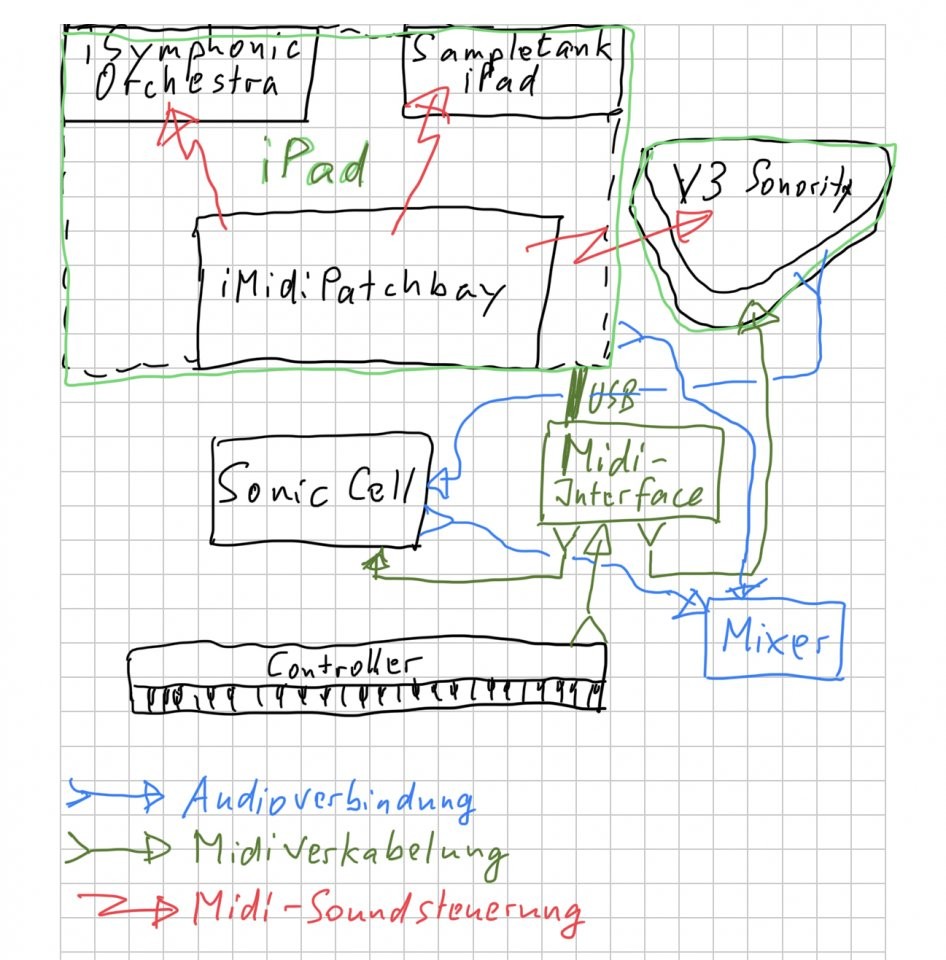 iSymphonic
Orchestra
Sampletank
iPad
iPad
V3 Sonority
iMidiPatchbay
USB
Midi-
Interface
Sonic Cell
Mixer
Controller
Audioverbindung
Midiverkabelung
Midi-Soundsteuerung